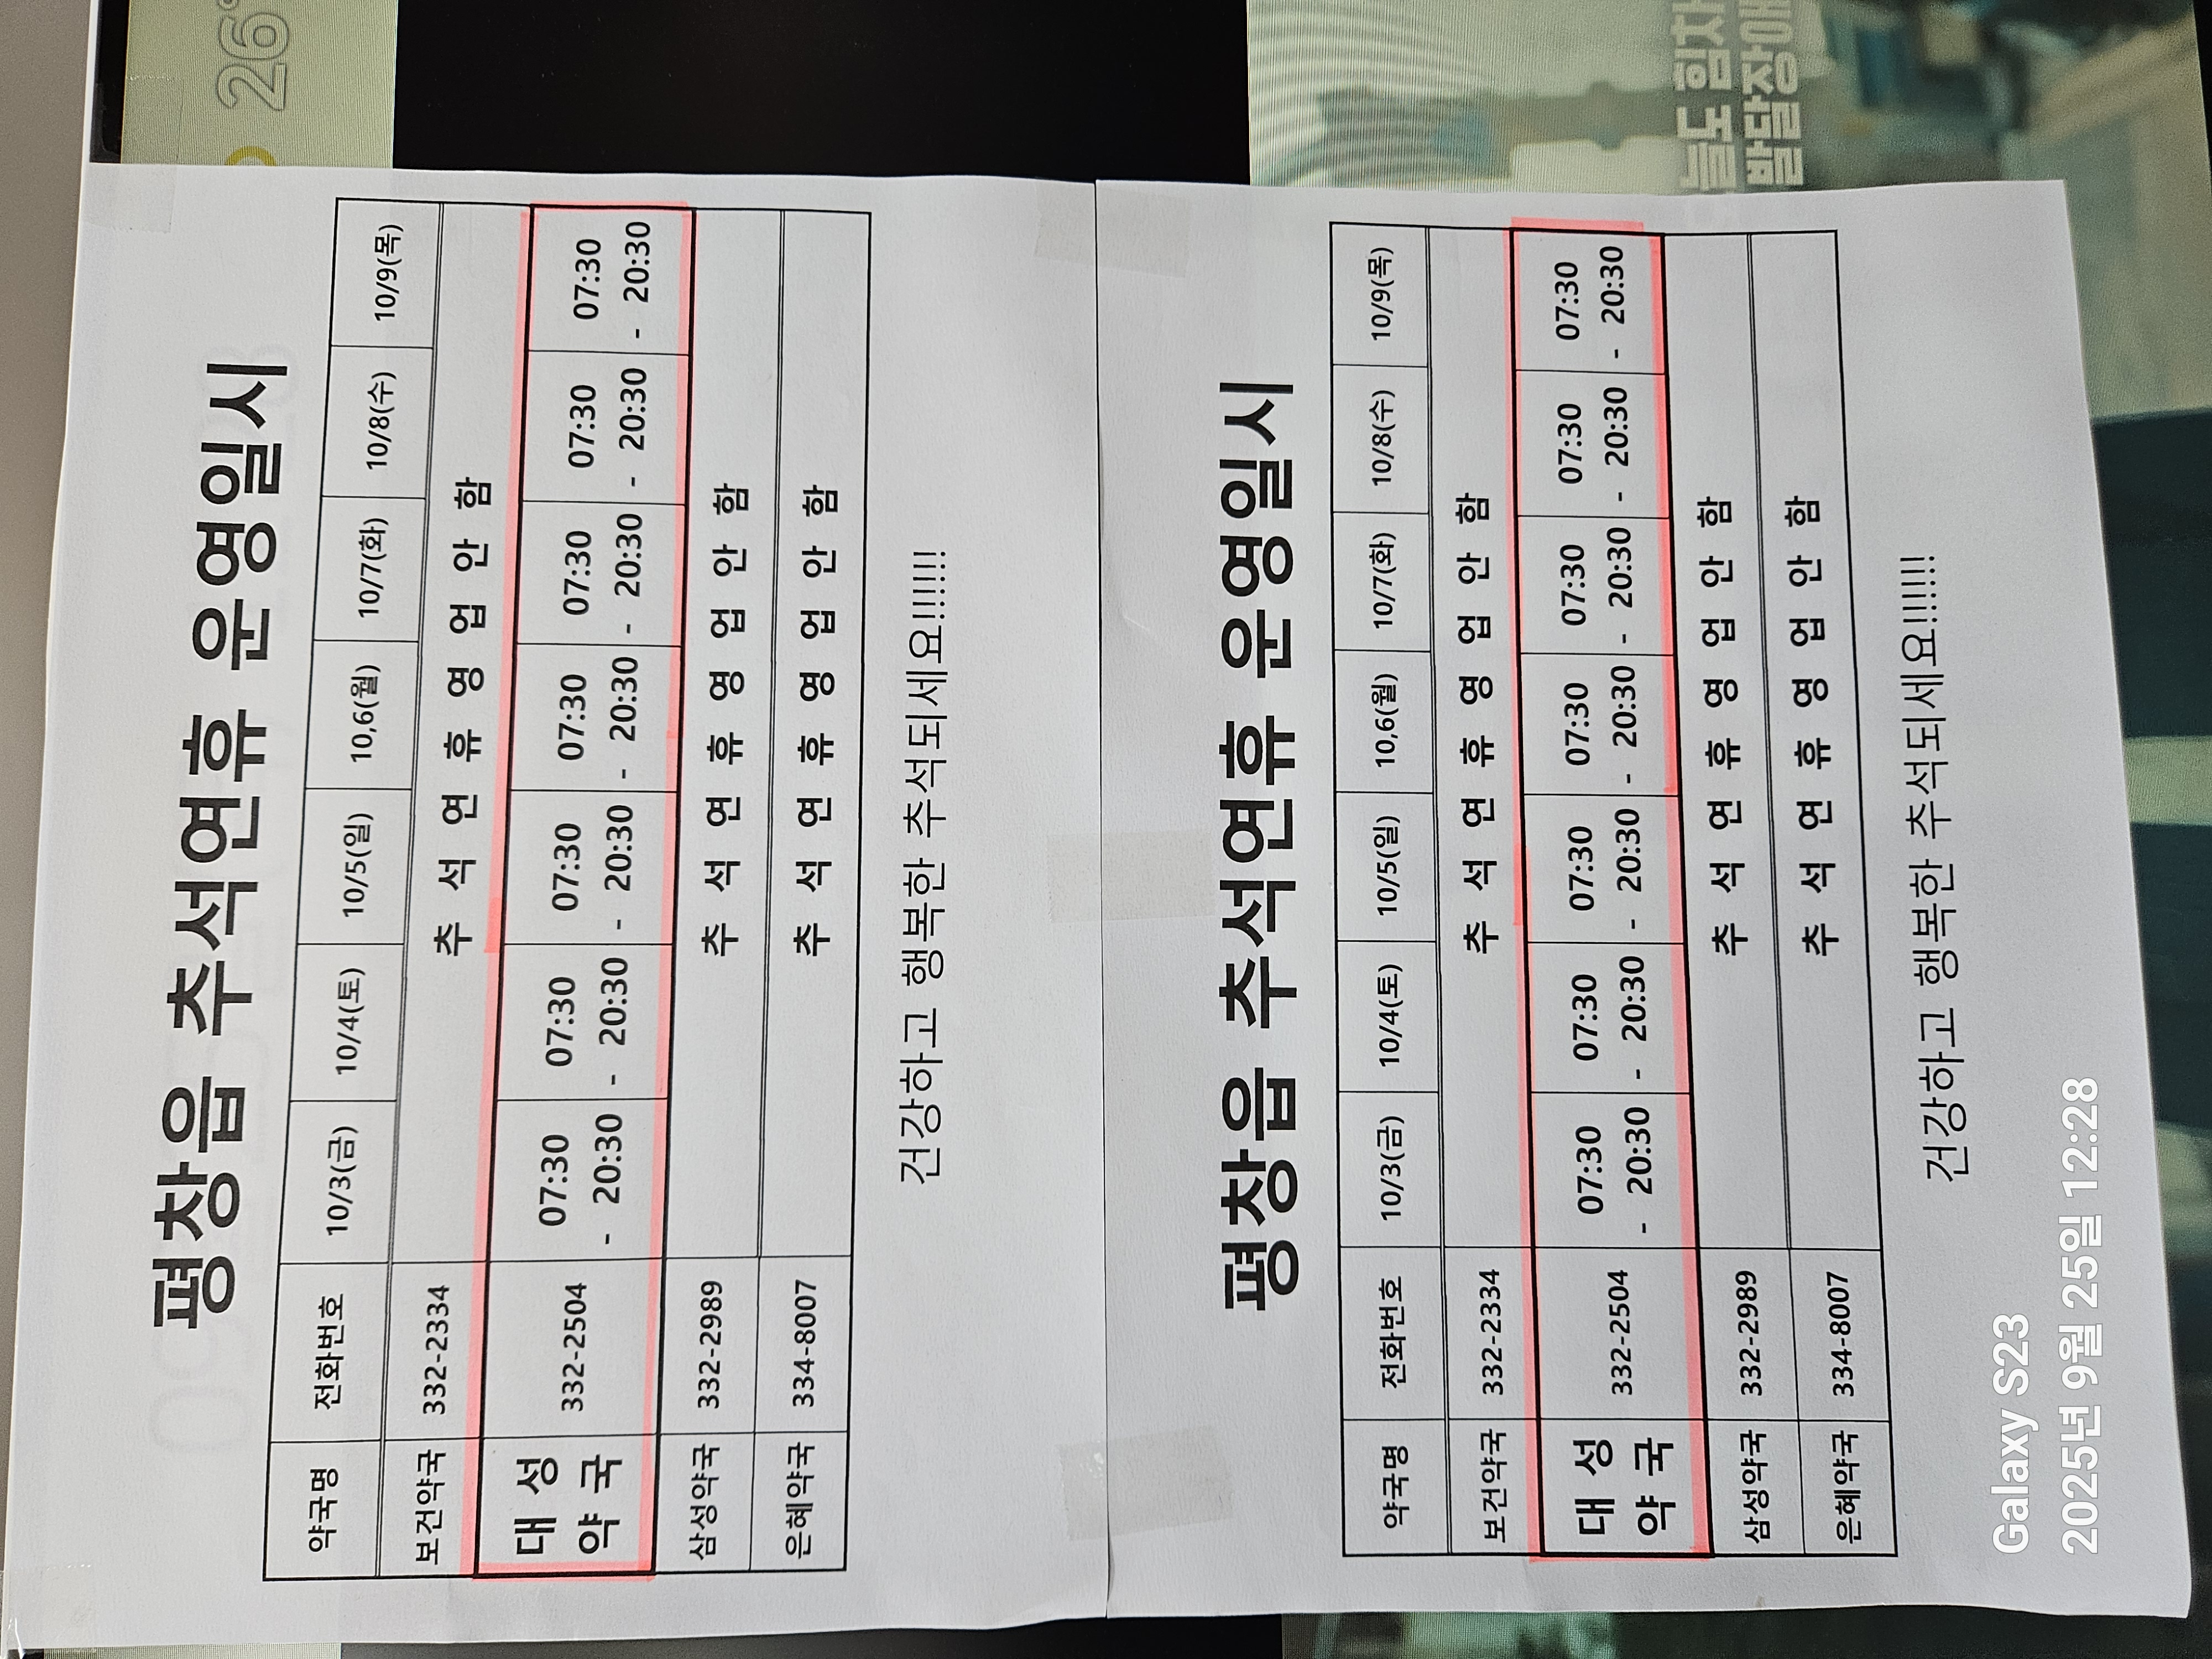 평창읍 추석연휴 운영일시
약국명 전화번호 10/3(금) 10/4(토) 10/5(일) 10,6(월) 10/7(화) 10/8(수) 10/9(목)
보건약국 332-2334 추 석 연 휴 영 업 안 함
대 성 약 국 332-2504 07:30 - 20:30 07:30 - 20:30 07:30 - 20:30 07:30 - 20:30 07:30 - 20:30 07:30 - 20:30 07:30 - 20:30
삼성약국 332-2989 추 석 연 휴 영 업 안 함
은혜약국 334-8007 추 석 연 휴 영 업 안 함
건강하고 행복한 추석되세요!!!!!!!
평창읍 추석연휴 운영일시
약국명 전화번호 10/3(금) 10/4(토) 10/5(일) 10,6(월) 10/7(화) 10/8(수) 10/9(목)
보건약국 332-2334 추 석 연 휴 영 업 안 함
대 성 약 국 332-2504 07:30 - 20:30 07:30 - 20:30 07:30 - 20:30 07:30 - 20:30 07:30 - 20:30 07:30 - 20:30 07:30 - 20:30
삼성약국 332-2989 추 석 연 휴 영 업 안 함
은혜약국 334-8007 추 석 연 휴 영 업 안 함
건강하고 행복한 추석되세요!!!!!!!
26°
Galaxy S23
2025년 9월 25일 12:28